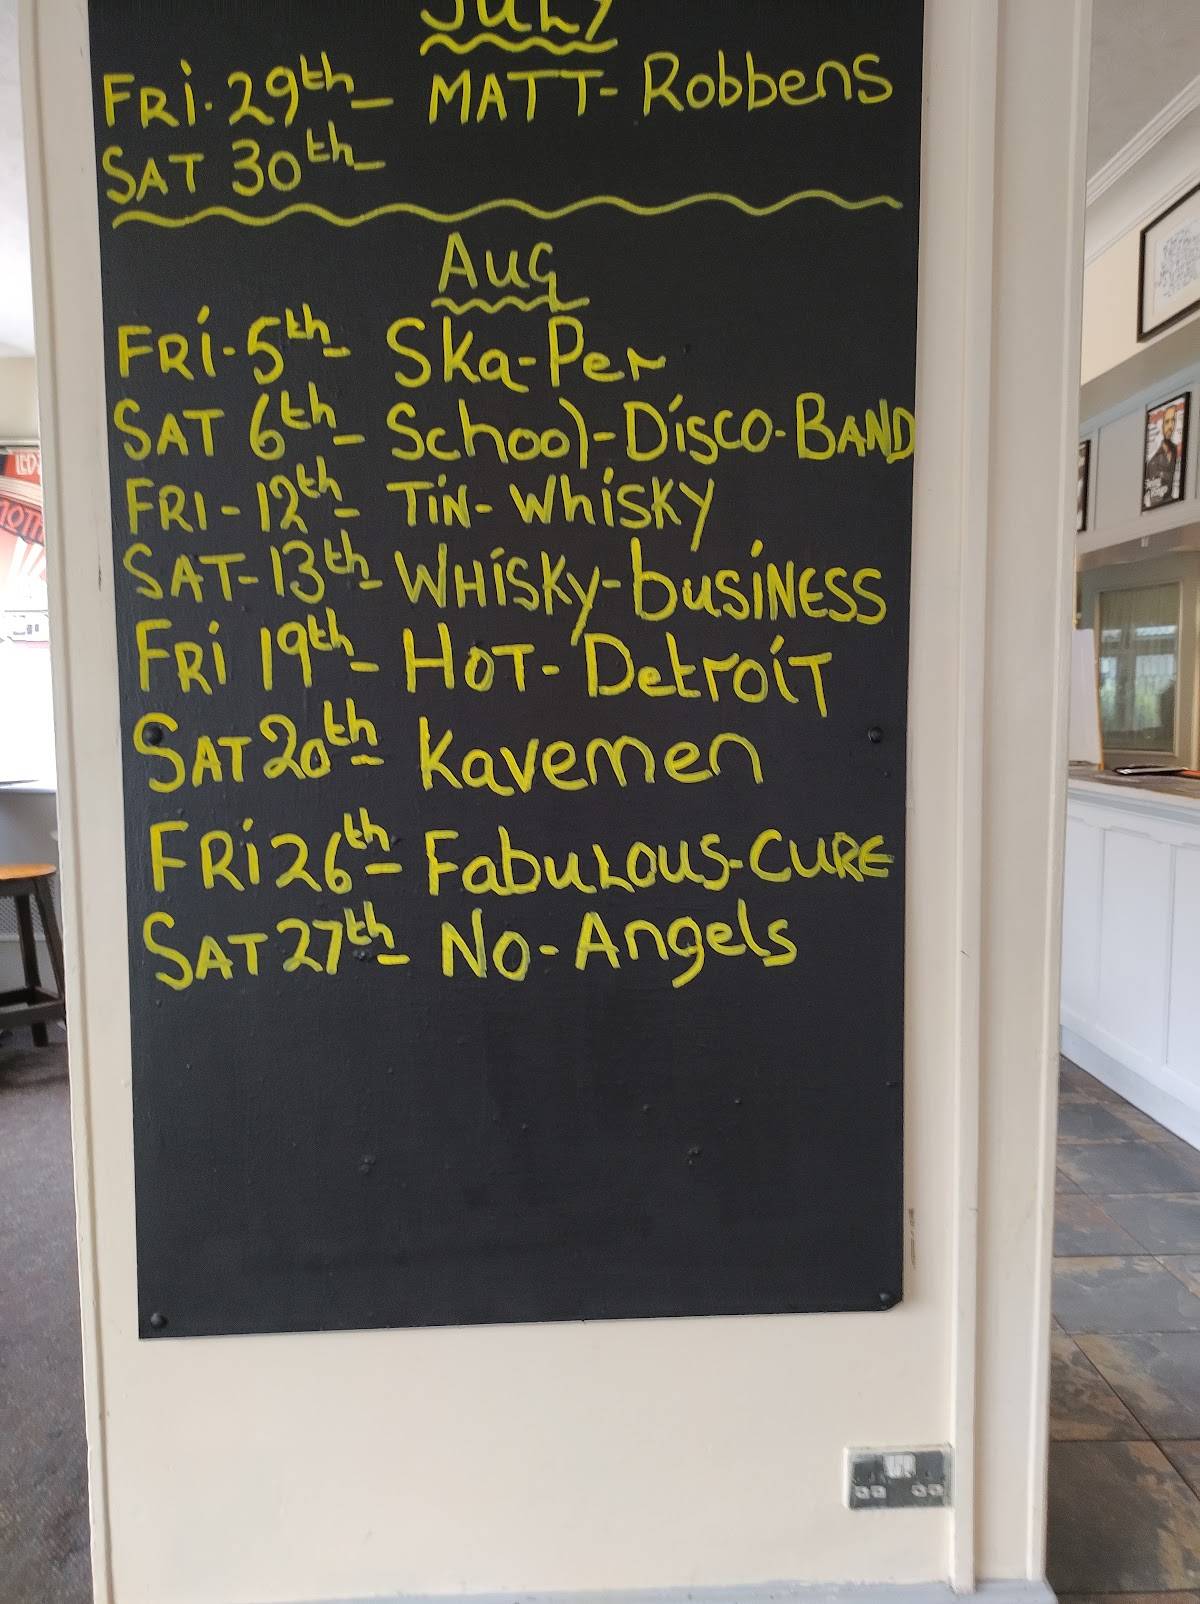 JULY
FRi. 29th - MATT- Robbens
SAT 30th -
AUG
FRi - 5th - Ska-Per
SAT 6th - School-Disco-BAND
FRI - 12th - TiN- Whisky
SAT- 13th - WHiSKy-busiNESS
FRi 19th - HOT- Detroit
SAT 20th - Kavemen
FRi 26th - FabuLOUS-CURE
SAT 27th - NO-Angels
LED